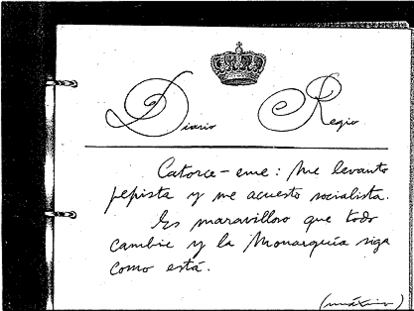 Diario Regio
Catorce-eme: Me levanto
pepista y me acuesto socialista.
Es maravilloso que todo
cambie y la Monarquía siga
como está.
(máximo)